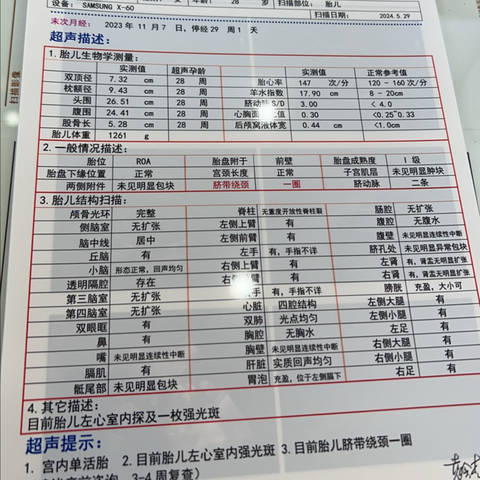 设备：SAMSUNG X-60 年龄：28 岁 扫描部位：胎儿
扫描日期：2024.5.29
末次月经：2023 年 11 月 7 日，停经 29 周 1 天
超声描述：
1. 胎儿生物学测量：
实测值 超声孕龄 实测值 正常参考值
双顶径 7.32 cm 28 周 胎心率 147 次/分 120 - 160 次/分
枕额径 9.43 cm 28 周 羊水指数 17.90 cm 8 - 20cm
头围 26.51 cm 28 周 脐动脉 S/D 3.00 < 4.0
腹围 24.41 cm 28 周 心胸面积比值 0.30 <0.25-0.33
股骨长 5.28 cm 28 周 后颅窝液体宽 0.44 cm <1.0cm
胎儿体重 1261 g
2. 一般情况描述：
胎位 ROA 胎盘附于 前壁 胎盘成熟度 I 级
胎盘下缘位置 正常 宫颈长度 正常 子宫肌层 未见明显肿块
两侧附件 未见明显包块 脐带绕颈 一圈 脐动脉 二条
3. 胎儿结构扫描：
颅骨光环 完整 脊柱 无重度开放性脊柱裂 肠腔 无扩张
侧脑室 无扩张 左侧上臂 有 腹腔 无腹水
脑中线 居中 左侧前臂 有 腹壁 未见明显连续性中断
丘脑 有 左手 有，手指不详 脐孔处 未见明显异常包块
小脑 形态正常，回声均匀 右侧上臂 有 左肾 有，肾盂无明显扩张
透明隔腔 存在 右侧 有 右肾 有，肾盂无明显扩张
第三脑室 无扩张 手 有，手指不详 膀胱 充盈，大小可
第四脑室 无扩张 心脏 四腔结构 左侧大腿 有
双眼眶 有 双肺 光点均匀 左侧小腿 有
鼻 有 胸腔 无胸水 左足 有
嘴 未见明显连续性中断 胸壁 未见明显连续性中断 右侧大腿 有
膈肌 有 肝脏 实质回声均匀 右侧小腿 有
骶尾部 未见明显包块 胃泡 充盈，位于左侧膈下 右足 有
4. 其它描述：
目前胎儿左心室内探及一枚强光斑
超声提示：
1. 宫内单活胎 2. 目前胎儿左心室内强光斑 3. 目前胎儿脐带绕颈一圈
3-4 周复查）